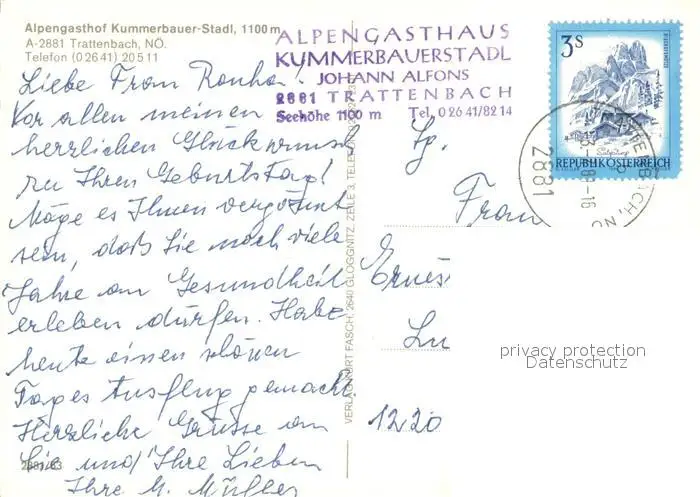 Alpengasthof Kummerbauer-Stadl, 1100 m
A-2881 Trattenbach, NÖ.
Telefon (0 26 41) 20 5 11
ALPENGASTHAUS
KUMMERBAUERSTADL
JOHANN ALFONS
2881 TRATTENBACH
Seehöhe 1100 m Tel. 0 26 41/82 14
Liebe Frau
Vor allen meinen
herzlichen Glückwunsch
zu Ihren Geburtstag!
Möge es Ihnen vergönnt
sein, daß Sie noch viele
Jahre an Gesundheit
erleben dürfen. Habe
heute einen schönen
Tages Ausflug gemacht.
Herzliche Grüsse an
Sie und Ihre Lieben
Ihre M. Müller
2881/63
VERLAG KURT FASCH, 2640 GLOGGNITZ, ZEILE 3, TELEFON
3S
REPUBLIK ÖSTERREICH
TRATTENBACH, NÖ
2881
Frau
1220
privacy protection
Datenschutz